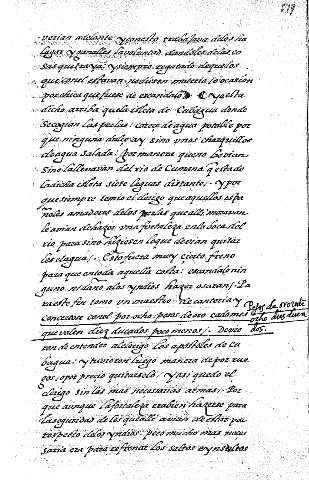 519
verian adelante y con esto trabajava delos ha
lagar y ganalles la voluntad dandoles delas co
sas que traya: y siempre recatando de aquellos
que con el estavan no diesen materia o ocasion
por chica que fuese de escandalo. Ya esta
dicho arriba que la isleta de Cubagua donde
se cogian las perlas: carece de agua potable por
que ninguna dulce ay sino unos charquillos
de agua salada: por manera que no bevian
sino la llevavan del rio de Cumana que esta de
la dicha isleta siete leguas distante: y por
que siempre temio el clerigo que aquellos espa
ñoles amadores delas perlas que alli moravan
le avian de hazer una fortaleza en la boca del
rio para si no hiziesen lo que devian quitar
les el agua. Esto fuera muy cierto freno
para que en toda aquella costa: escandalo nin
guno ni daño alos yndios hazer osaran. Pa
ra esto se tomo un maestro de canteria y
concertose con el por ocho pesos de oro cada mes
que valen diez ducados poco menos. Devie
Pesos de oro cada
ocho diez duca
dos.
ron de entender al clerigo los apostoles de Cu
bagua: y tuvieron luego manera de por rue
gos, o por precio quitarselo: y asi quedo el
clerigo sin las mas necesarias armas. Por
que aunque la fortaleza tambien hazerse para
la seguridad de los que alli avian de estar por
respecto delos yndios: pero mucho mas neces
saria era para refrenar los saltos e ynsultos